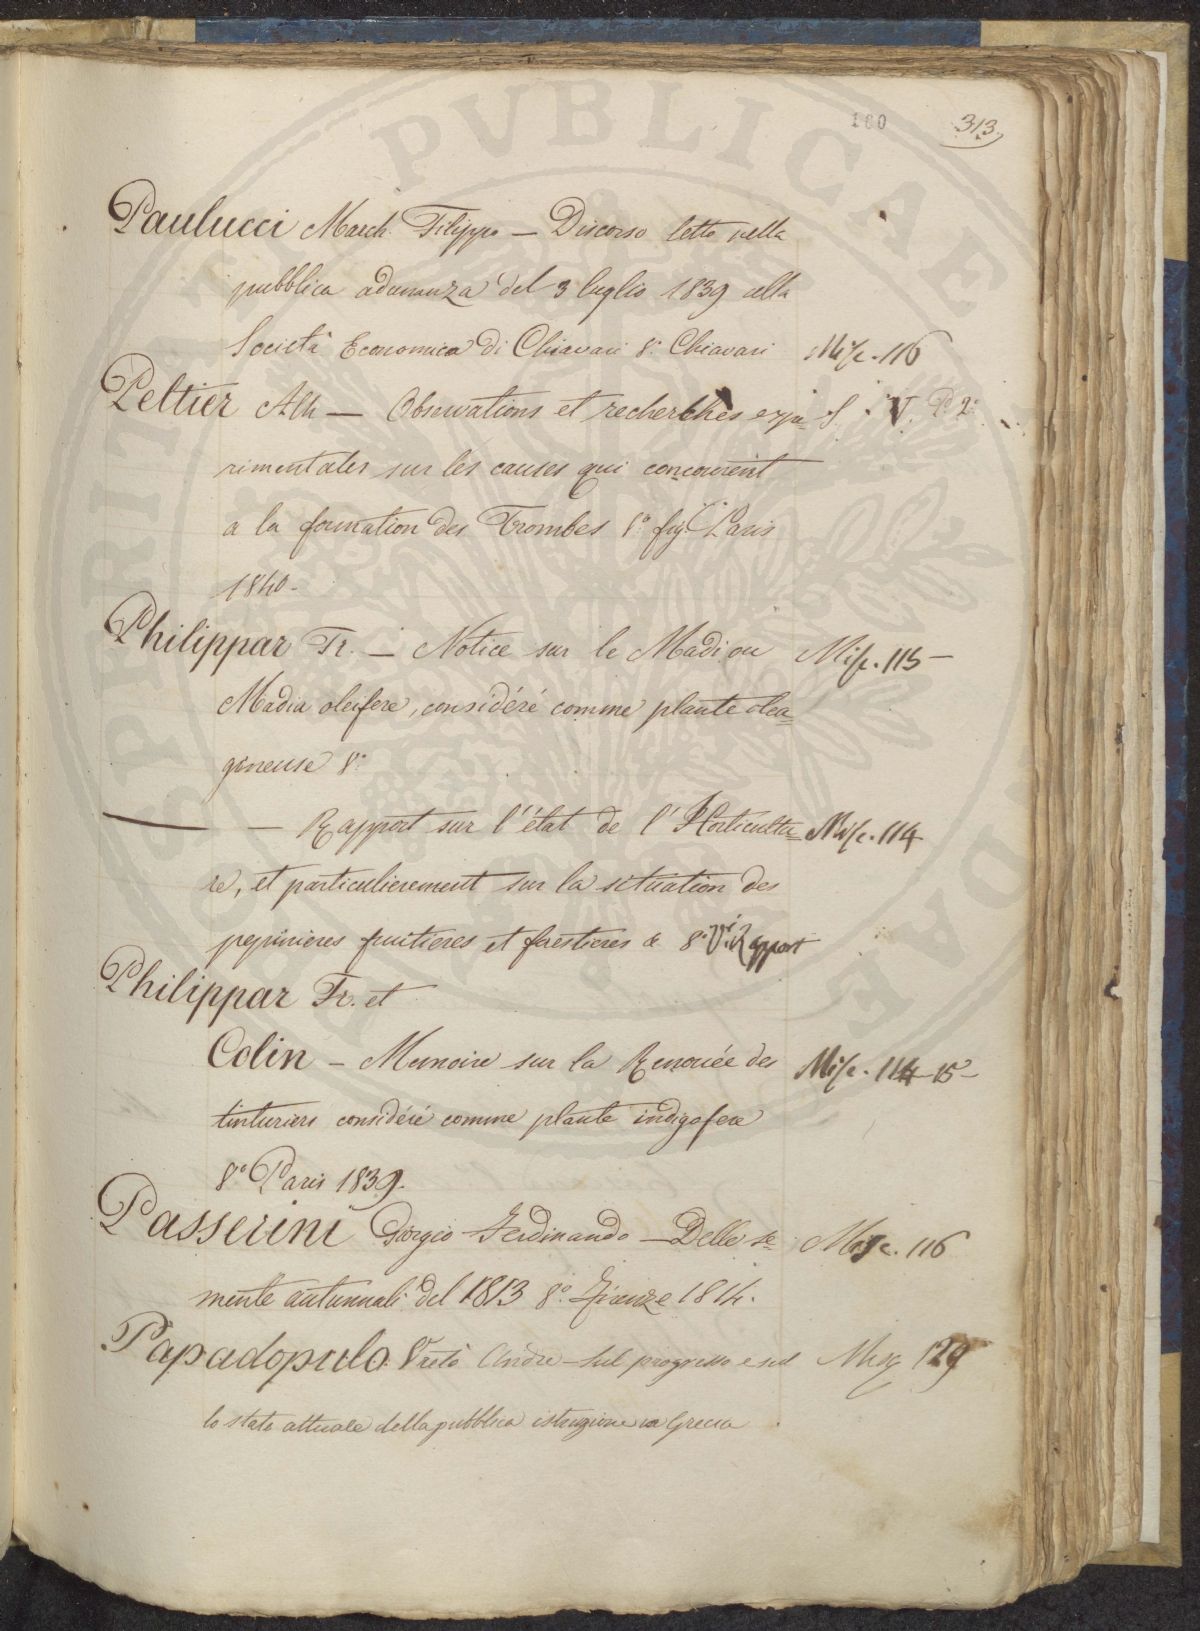 160 313
Paulucci March. Filippo — Discorso letto nella
pubblica adunanza del 3 luglio 1839 alla
Società Economica di Chiavari 8.° Chiavari Misc. 116
Peltier Ath — Observations et recherches expé- S. V. P. 2.
rimentales sur les causes qui concourent
a la formation des Trombes 8.° fig. Paris
1840.
Philippar Fr. — Notice sur le Madi ou Misc. 115 —
Madia oleifere, considéré comme plante olea-
gineuse 8.°
— — Rapport sur l'état de l'Horticultu- Misc. 114
re, et particulierement sur la situation des
pepinieres fruitieres et forestieres & 8.° Rapport
Philippar Fr. et
Colin — Memoire sur la Renouée des Misc. 114 - 15 -
tinturiers considéré comme plante indigofere
8.° Paris 1839.
Passerini Giorgio Ferdinando — Delle se- Misc. 116
mente autunnali del 1813 8.° Firenze 1814.
Papadopulo Vretò Andre — Sul progresso e sul Misc 129
lo stato attuale della pubblica istruzione in Grecia
PVBLICAE